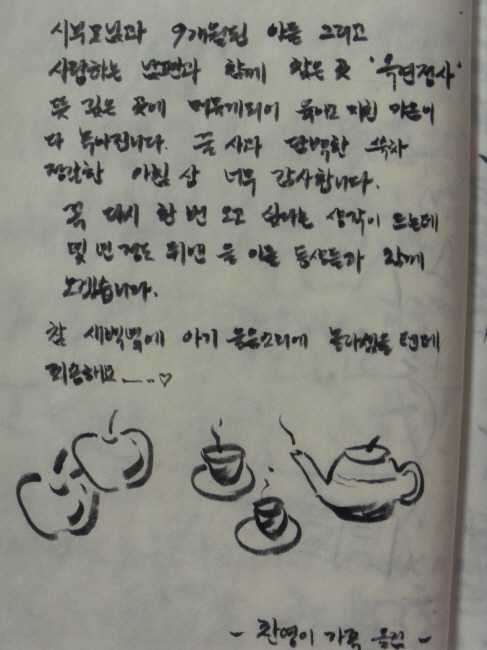 시부모님과 9개월된 아들 그리고
사랑하는 남편과 함께 찾은 곳 '옥연정사'
뜻 깊은 곳에 머무게되어 육아로 지친 마음이
다 녹아집니다. 꿀 사과 담백한 쑥차
정갈한 아침 상 너무 감사합니다.
꼭 다시 한 번 오고 싶다는 생각이 드는데
몇 년 정도 뒤엔 울 아들 동생들과 함께
오겠습니다.
참 새벽녘에 아기 울음소리에 놀라셨을 텐데
죄송해요 ㅡ..ㅡ♡
- 찬영이 가족 올림 -